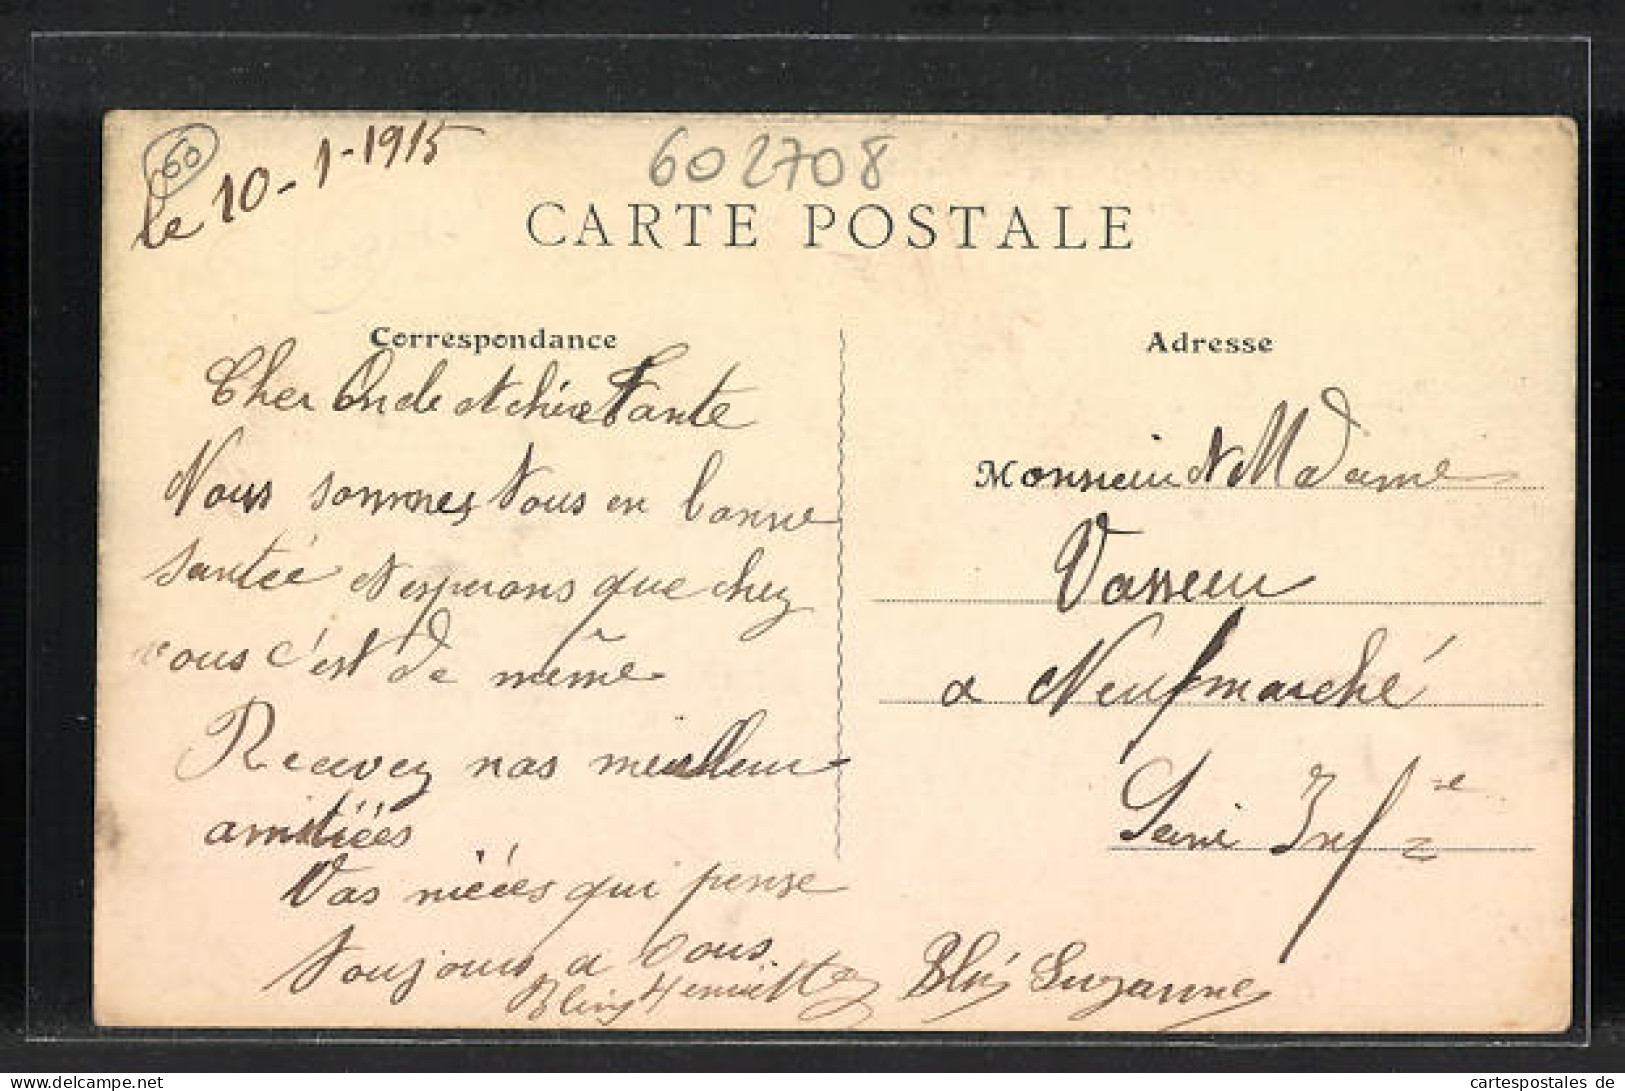 60
le 10-1-1915
602708
CARTE POSTALE
Correspondance
Cher Oncle et chère Tante
Nous sommes tous en bonne
santée et esperons que chez
vous c'est de même
Recevez nos meilleur
amitiées
Vos niéces qui pense
toujours a vous.
Henriette Suzanne
Adresse
Monsieur et Madame
Vasseur
a Neufmarché
Seine Inf re
cartespostales de